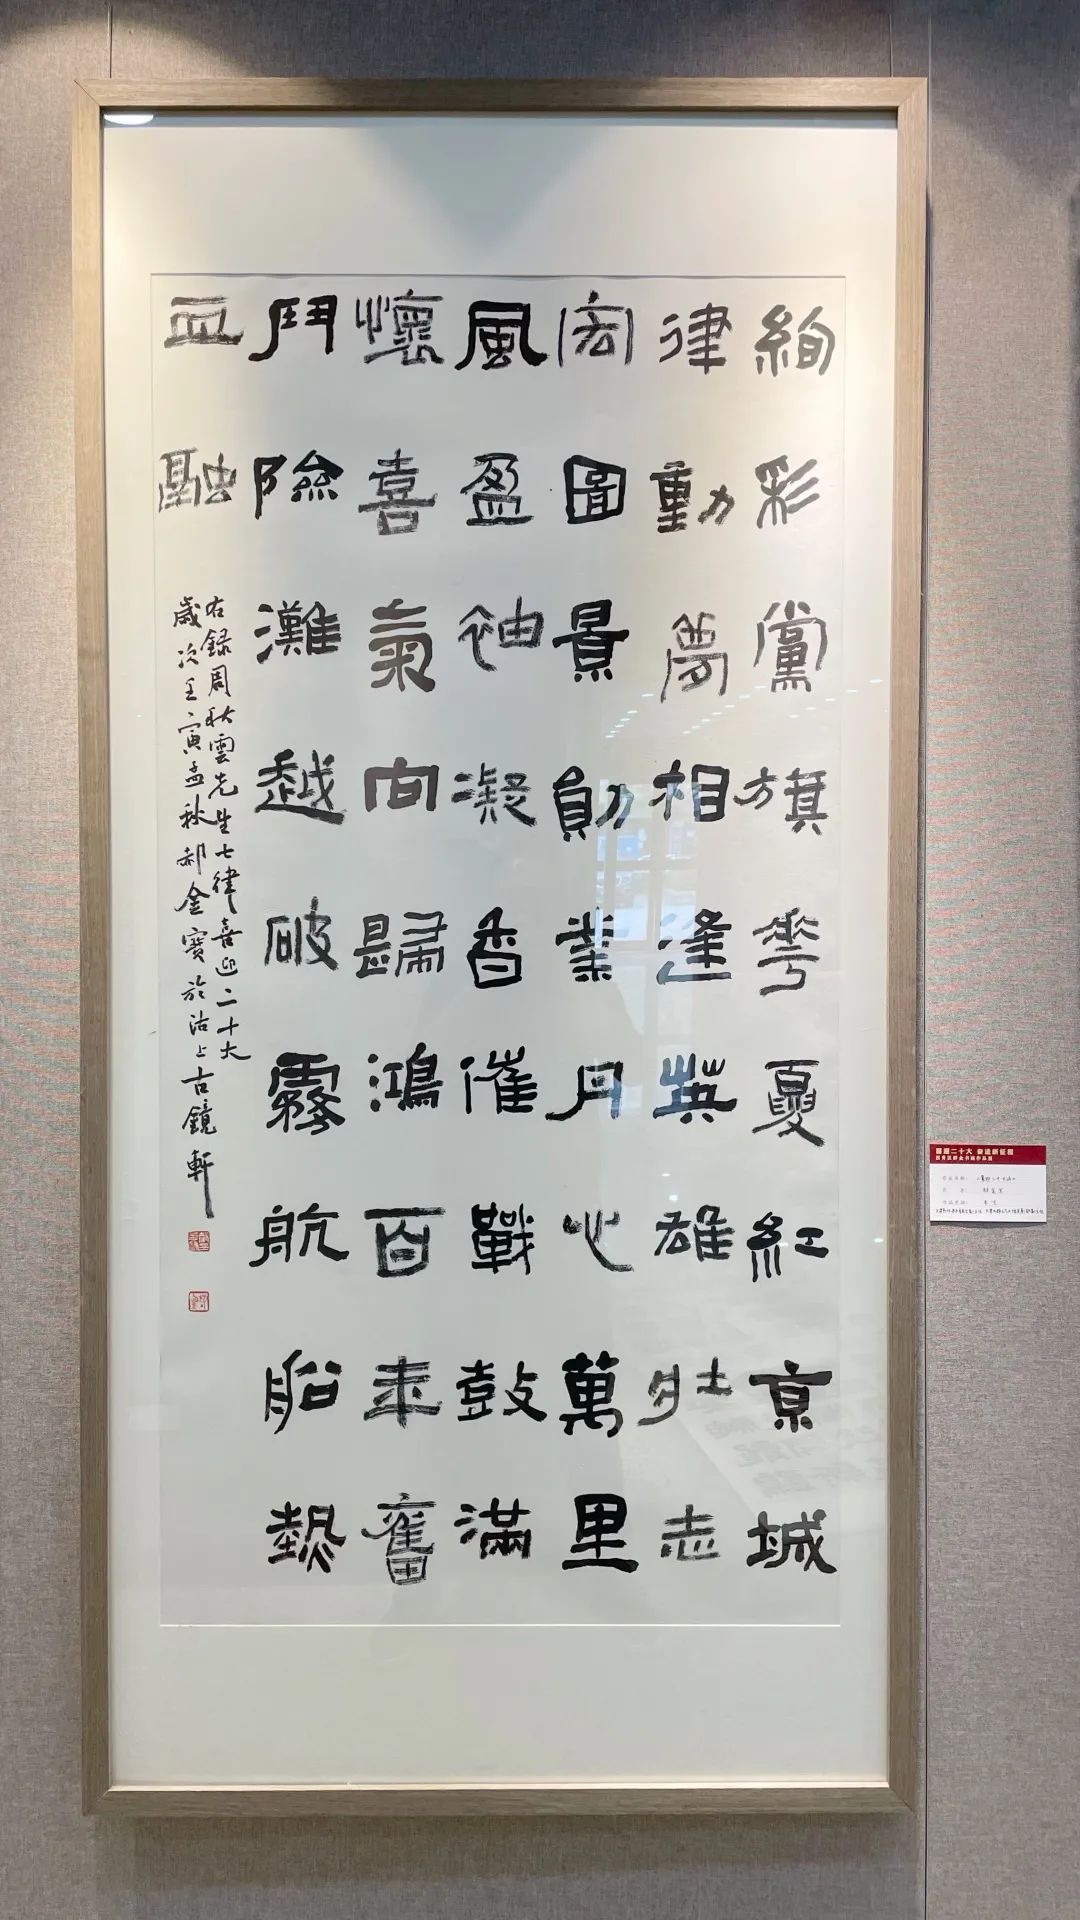 絢彩黨旗華夏紅京城
律動夢相逢英雄壯志
宏圖景勛業丹心萬里
風盈袖凝香催戰鼓滿
懷喜氣向歸鴻百年奮
鬥險灘越破霧航船熱
血融
右録周秋雲先生七律喜迎二十大
歲次壬寅孟秋郝金寶於沽上古鏡軒
喜迎二十大 奋进新征程